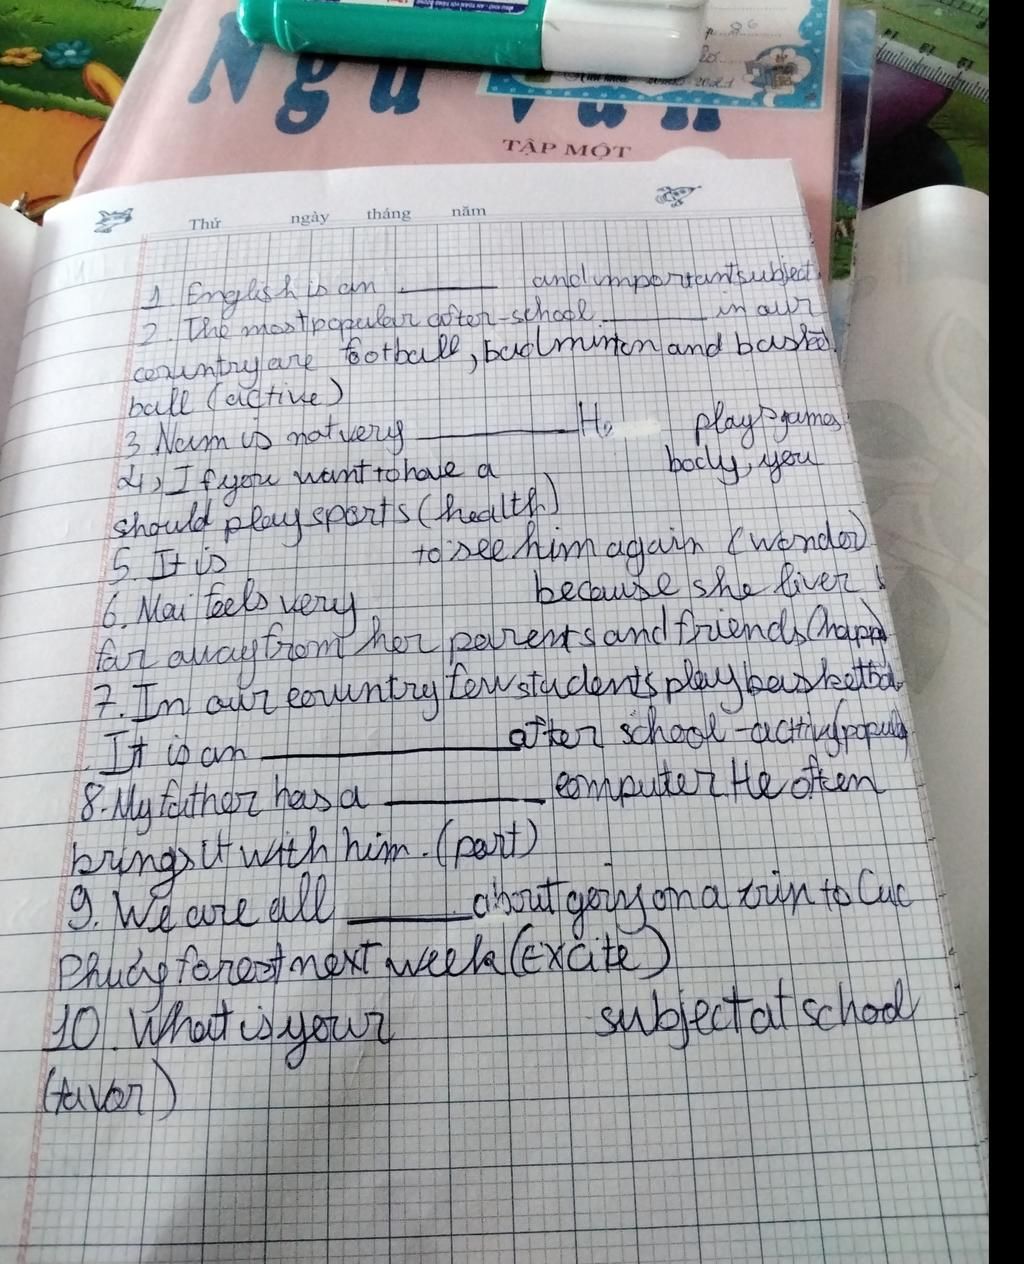 Ngữ Văn
TẬP MỘT
Thứ ngày tháng năm
1. English is an ______ and important subject
2. The most popular after-school ______ in our
country are football, badminton and basket
ball (active)
3 Nam is not very ______ He plays games
4, If you want to have a body, you
should play sports (health)
5. It is to see him again (wonder)
6. Mai feels very because she liver
far away from her parents and friends (happ
7. In our country few students play basketbal
It is an ______ after school - activi (popula
8. My father has a ______ computer. He often
brings it with him. (port)
9. We are all ______ about going on a trin to Cuc
Phuong forest next week (Excite)
10. What is your subject at school
(favor)